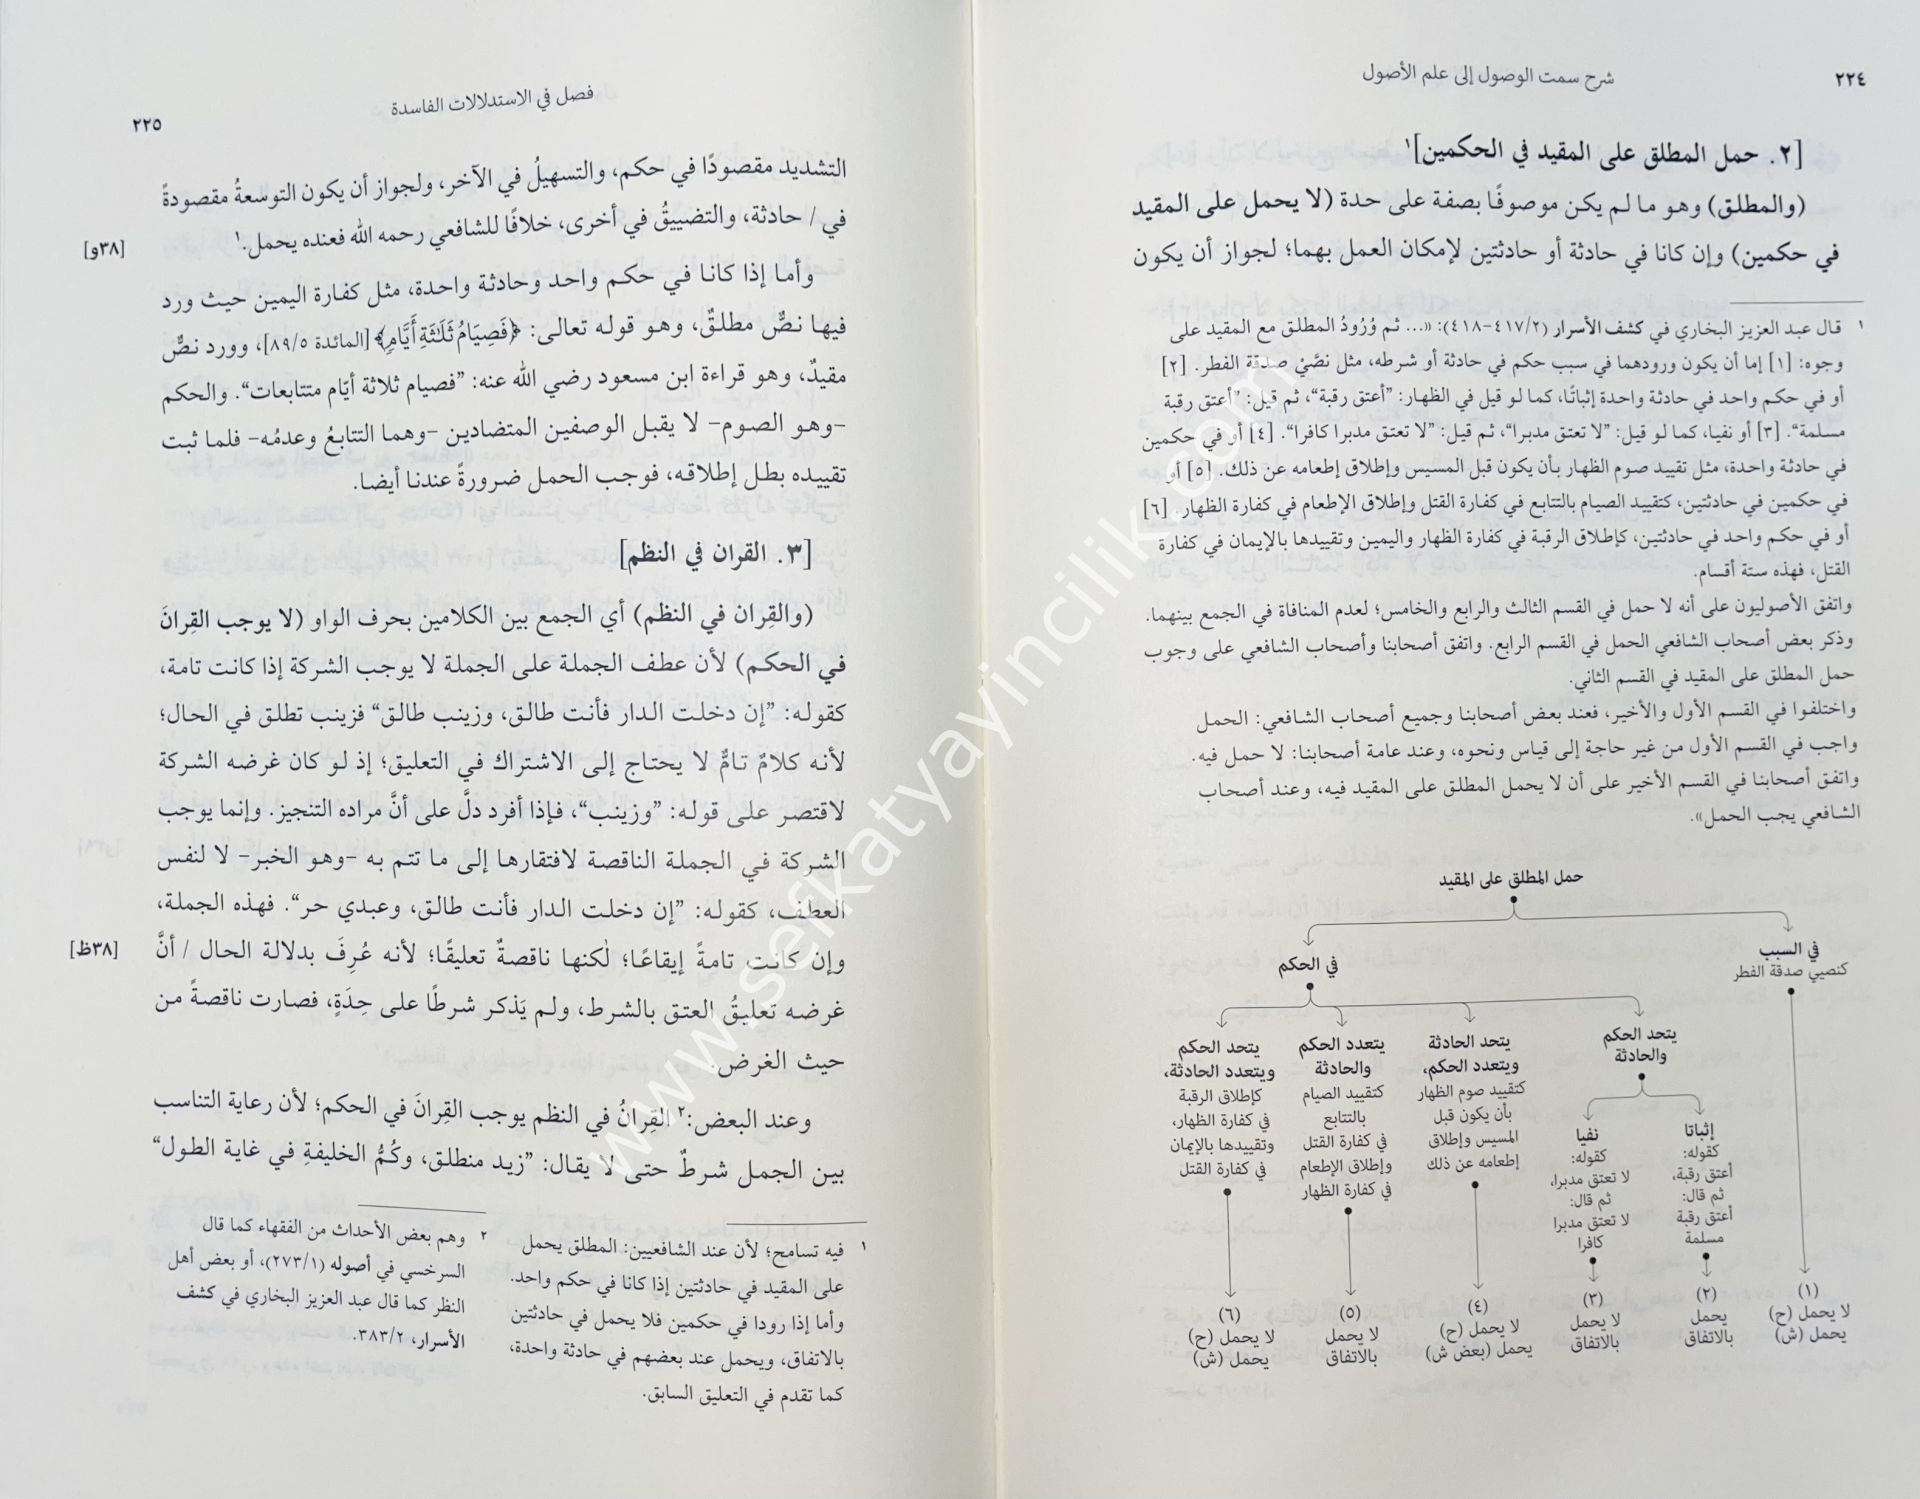 ٢٢٤
شرح سمت الوصول إلى علم الأصول
[٢. حمل المطلق على المقيد في الحكمين]١
(والمطلق) وهو ما لم يكن موصوفًا بصفة على حدة (لا يحمل على المقيد
في حكمين) وإن كانا في حادثة أو حادثتين لإمكان العمل بهما؛ لجواز أن يكون
١ قال عبد العزيز البخاري في كشف الأسرار (٤١٧/٢-٤١٨): «... ثم وُرُودُ المطلق مع المقيد على
وجوه: [١] إما أن يكون ورودهما في سبب حكم في حادثة أو شرطه، مثل نصَّيْ صدقة الفطر. [٢]
أو في حكم واحد في حادثة واحدة إثباتًا، كما لو قيل في الظهار: ”أعتق رقبة“، ثم قيل: ”أعتق رقبة
مسلمة“. [٣] أو نفيا، كما لو قيل: ”لا تعتق مدبرا“، ثم قيل: ”لا تعتق مدبرا كافرا“. [٤] أو في حكمين
في حادثة واحدة، مثل تقييد صوم الظهار بأن يكون قبل المسيس وإطلاق إطعامه عن ذلك. [٥] أو
في حكمين في حادثتين، كتقييد الصيام بالتتابع في كفارة القتل وإطلاق الإطعام في كفارة الظهار. [٦]
أو في حكم واحد في حادثتين، كإطلاق الرقبة في كفارة الظهار واليمين وتقييدها بالإيمان في كفارة
القتل، فهذه ستة أقسام.
واتفق الأصوليون على أنه لا حمل في القسم الثالث والرابع والخامس؛ لعدم المنافاة في الجمع بينهما.
وذكر بعض أصحاب الشافعي الحمل في القسم الرابع. واتفق أصحابنا وأصحاب الشافعي على وجوب
حمل المطلق على المقيد في القسم الثاني.
واختلفوا في القسم الأول والأخير، فعند بعض أصحابنا وجميع أصحاب الشافعي: الحمل
واجب في القسم الأول من غير حاجة إلى قياس ونحوه، وعند عامة أصحابنا: لا حمل فيه.
واتفق أصحابنا في القسم الأخير على أن لا يحمل المطلق على المقيد فيه، وعند أصحاب
الشافعي يجب الحمل».
حمل المطلق على المقيد
في السبب
كنصيي صدقة الفطر
في الحكم
يتحد الحكم
والحادثة
يتحد الحادثة
ويتعدد الحكم،
كتقييد صوم الظهار
بأن يكون قبل
المسيس وإطلاق
إطعامه عن ذلك
يتعدد الحكم
والحادثة
كتقييد الصيام
بالتتابع
في كفارة القتل
وإطلاق الإطعام
في كفارة الظهار
يتحد الحكم
ويتعدد الحادثة،
كإطلاق الرقبة
في كفارة الظهار،
وتقييدها بالإيمان
في كفارة القتل
إثباتا
كقوله:
أعتق رقبة،
ثم قال:
أعتق رقبة
مسلمة
نفيا
كقوله:
لا تعتق مدبرا،
ثم قال:
لا تعتق مدبرا
كافرا
(١)
لا يحمل (ح)
يحمل (ش)
(٢)
يحمل
بالاتفاق
(٣)
لا يحمل
بالاتفاق
(٤)
لا يحمل (ح)
يحمل (بعض ش)
(٥)
لا يحمل
بالاتفاق
(٦)
لا يحمل (ح)
يحمل (ش)
فصل في الاستدلالات الفاسدة
٢٢٥
التشديد مقصودًا في حكم، والتسهيلُ في الآخر، ولجواز أن يكون التوسعةُ مقصودةً
في / حادثة، والتضييقُ في أخرى، خلافًا للشافعي رحمه الله فعنده يحمل.١
[٣٨و]
وأما إذا كانا في حكم واحد وحادثة واحدة، مثل كفارة اليمين حيث ورد
فيها نصٌّ مطلقٌ، وهو قوله تعالى: ﴿فَصِيَامُ ثَلَٰثَةِ أَيَّامٍ﴾ [المائدة ٨٩/٥]، وورد نصٌّ
مقيدٌ، وهو قراءة ابن مسعود رضي الله عنه: ”فصيام ثلاثة أيّام متتابعات“. والحكم
–وهو الصوم– لا يقبل الوصفين المتضادين –وهما التتابعُ وعدمُه– فلما ثبت
تقييده بطل إطلاقه، فوجب الحمل ضرورةً عندنا أيضا.
[٣. القران في النظم]
(والقِران في النظم) أي الجمع بين الكلامين بحرف الواو (لا يوجب القِرانَ
في الحكم) لأن عطف الجملة على الجملة لا يوجب الشركة إذا كانت تامة،
كقوله: ”إن دخلت الدار فأنت طالق، وزينب طالق“ فزينب تطلق في الحال؛
لأنه كلامٌ تامٌّ لا يحتاج إلى الاشتراك في التعليق؛ إذ لو كان غرضه الشركة
لاقتصر على قوله: ”وزينب“، فإذا أفرد دلَّ على أنَّ مراده التنجيز. وإنما يوجب
الشركة في الجملة الناقصة لافتقارها إلى ما تتم به –وهو الخبر– لا لنفس
العطف، كقوله: ”إن دخلت الدار فأنت طالق، وعبدي حر“. فهذه الجملة،
وإن كانت تامةً إيقاعًا؛ لٰكنها ناقصةٌ تعليقًا؛ لأنه عُرِفَ بدلالة الحال / أنَّ
[٣٨ظ]
غرضه تعليقُ العتق بالشرط، ولم يَذكر شرطًا على حِدَةٍ، فصارت ناقصةً من
حيث الغرض.
وعند البعض:٢ القِرانُ في النظم يوجب القِرانَ في الحكم؛ لأن رعاية التناسب
بين الجمل شرطٌ حتى لا يقال: ”زيد منطلق، وكُمُّ الخليفةِ في غاية الطول“
١ فيه تسامح؛ لأن عند الشافعيين: المطلق يحمل
على المقيد في حادثتين إذا كانا في حكم واحد.
وأما إذا رودا في حكمين فلا يحمل في حادثتين
بالاتفاق، ويحمل عند بعضهم في حادثة واحدة،
كما تقدم في التعليق السابق.
٢ وهم بعض الأحداث من الفقهاء كما قال
السرخسي في أصوله (٢٧٣/١)، أو بعض أهل
النظر كما قال عبد العزيز البخاري في كشف
الأسرار، ٣٨٣/٢.
www.sefkatyayincilik.com